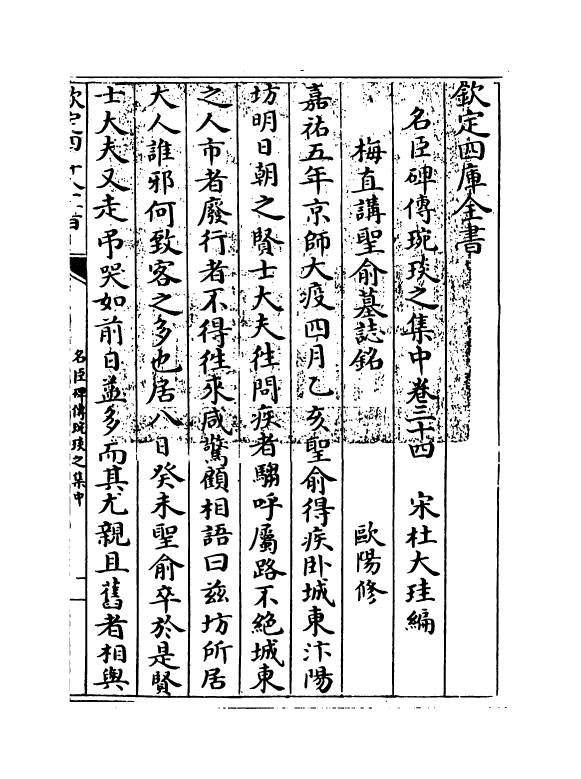 欽定四庫全書
名臣碑傳琬琰之集中卷三十四　宋杜大珪編
梅直講聖俞墓誌銘　歐陽修
嘉祐五年京師大疫四月乙亥聖俞得疾卧城東汴陽
坊明日朝之賢士大夫徃問疾者騶呼屬路不絶城東
之人市者廢行者不得徃來咸驚顧相語曰兹坊所居
大人誰邪何致客之多也居八日癸未聖俞卒於是賢
士大夫又走弔哭如前日益多而其尤親且舊者相與
欽定四庫全書
名臣碑傳琬琰之集中
一